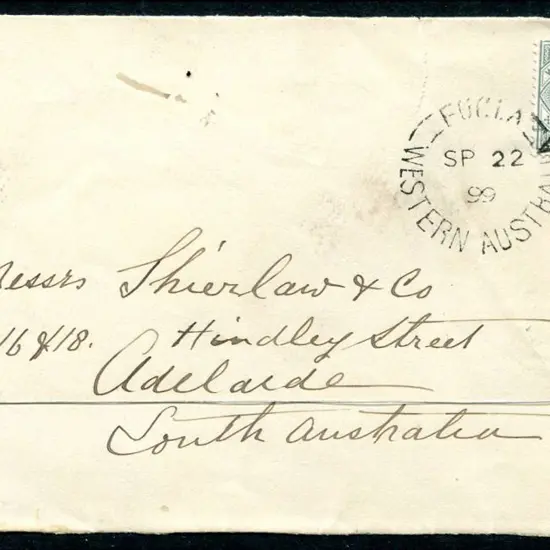 EUCLA
SP 22
99
WESTERN AUSTRALIA
Messrs Shierlaw & Co
16 & 18. Hindley Street
Adelaide
South Australia